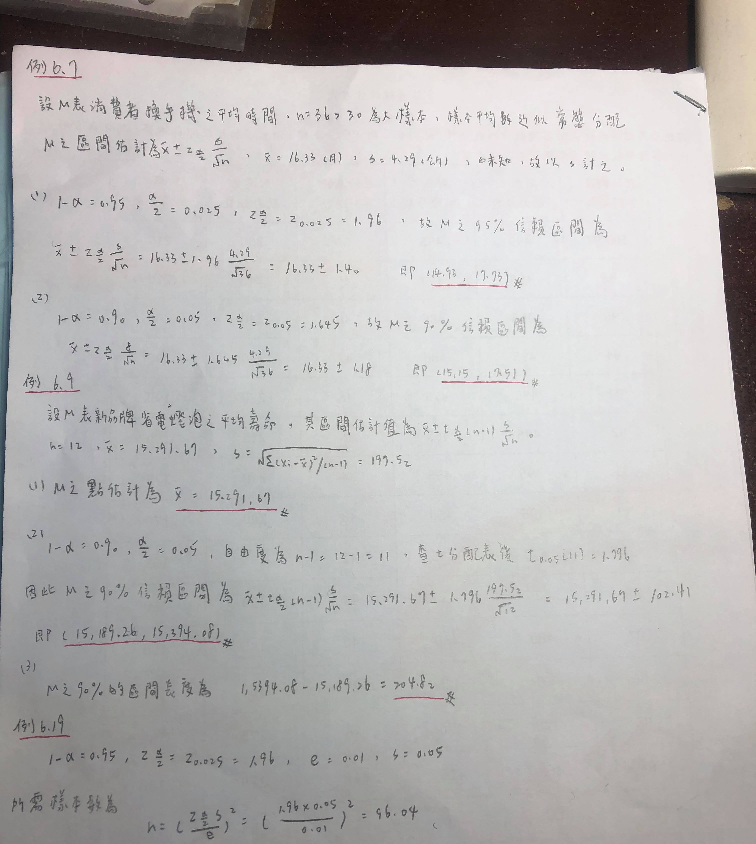 例 6.7
設 M 表消費者換手機之平均時間，n=36>30 為大樣本，樣本平均數近似常態分配
M 之區間估計為 x̄ ± z α/2 s/√n ，x̄ = 16.33 (月)，s = 4.29 (個月)，σ未知，故以 s 計之。
(1) 1-α = 0.95，α/2 = 0.025，z α/2 = z 0.025 = 1.96，故 M 之 95% 信賴區間為
x̄ ± z α/2 s/√n = 16.33 ± 1.96 4.29/√36 = 16.33 ± 1.40 即 (14.93, 17.73)※
(2)
1-α = 0.90，α/2 = 0.05，z α/2 = z 0.05 = 1.645，故 M 之 90% 信賴區間為
x̄ ± z α/2 s/√n = 16.33 ± 1.645 4.29/√36 = 16.33 ± 1.18 即 (15.15, 17.51)※
例 6.9
設 M 表新品牌省電燈泡之平均壽命，其區間估計值為 x̄ ± t α/2 (n-1) s/√n。
n=12，x̄ = 15,291.67，s = √Σ(xi-x̄)²/(n-1) = 197.52
(1) M 之點估計為 x̄ = 15,291.67※
(2)
1-α = 0.90，α/2 = 0.05，自由度為 n-1 = 12-1 = 11，查 t 分配表後 t 0.05 (11) = 1.796
因此 M 之 90% 信賴區間為 x̄ ± t α/2 (n-1) s/√n = 15,291.67 ± 1.796 197.52/√12 = 15,291.67 ± 102.41
即 (15,189.26, 15,394.08)※
(3)
M 之 90% 的區間長度為 1,5394.08 - 15,189.26 = 204.82※
例 6.19
1-α = 0.95，z α/2 = z 0.025 = 1.96，e = 0.01，s = 0.05
所需樣本數為 n = (z α/2 s/e)² = (1.96×0.05/0.01)² = 96.04